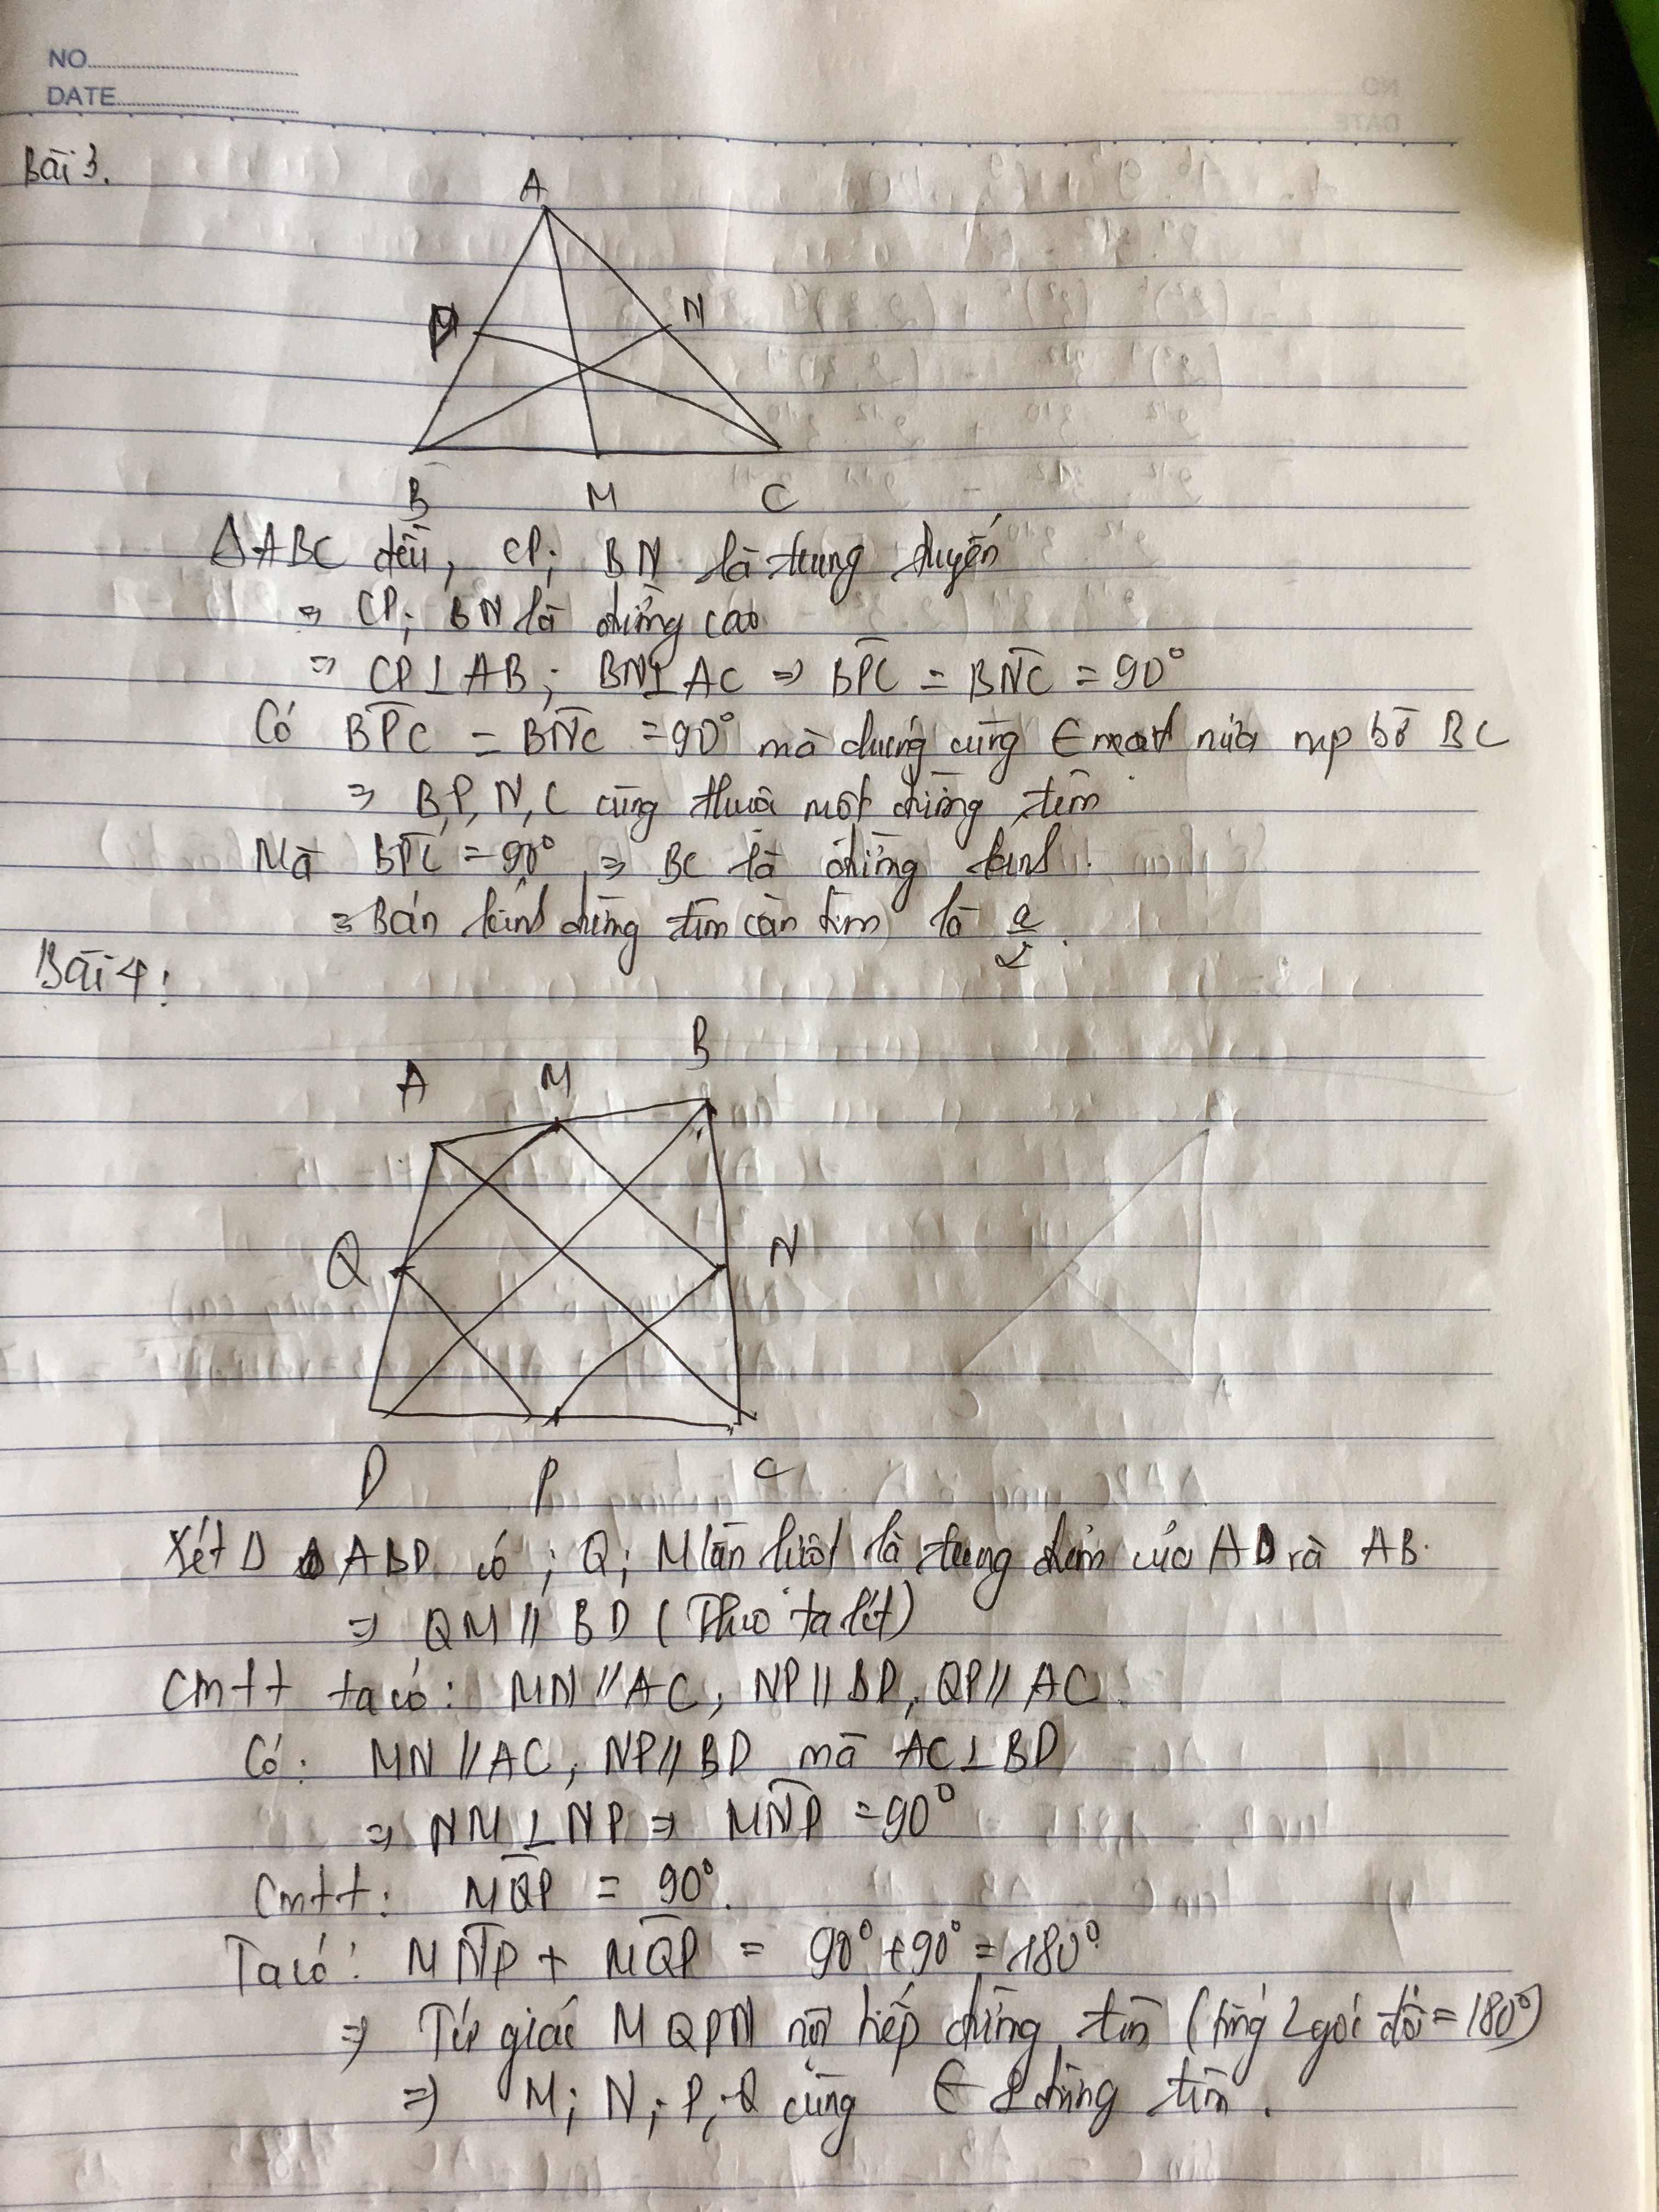 NO
DATE
Bài 3.
A
P N
B M C
ΔABC đều, CP; BN là trung tuyến
⇒ CP; BN là đường cao
⇒ CP⊥AB; BN⊥AC ⇒ BPC = BNC = 90°
Có BPC = BNC = 90° mà chúng cùng ∈ một nửa mp bờ BC
⇒ B,P,N,C cùng thuộc một đường tròn
Mà BPC = 90° ⇒ BC là đường kính.
⇒ Bán kính đường tròn cần tìm là a/2.
Bài 4:
A M B
Q N
D P C
Xét Δ ABD có; Q; M lần lượt là trung điểm của AD và AB.
⇒ QM // BD (Theo ta lét)
Cmtt ta có: MN // AC, NP // BD, QP // AC.
Có: MN // AC; NP // BD mà AC⊥BD
⇒ NM⊥NP ⇒ MNP = 90°
Cmtt: MQP = 90°.
Ta có: MNP + MQP = 90° + 90° = 180°
⇒ Tứ giác MQPN nội tiếp đường tròn (tổng 2 góc đối = 180°)
⇒ M; N; P; Q cùng ∈ 1 đường tròn.